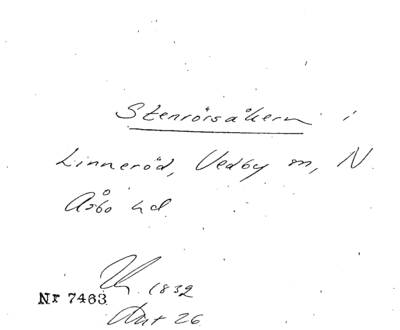 Stenrörsåkern i
Linneröd, Vedby sn, N.
Åsbo hd.
1832
Nr 7463
Akt 26